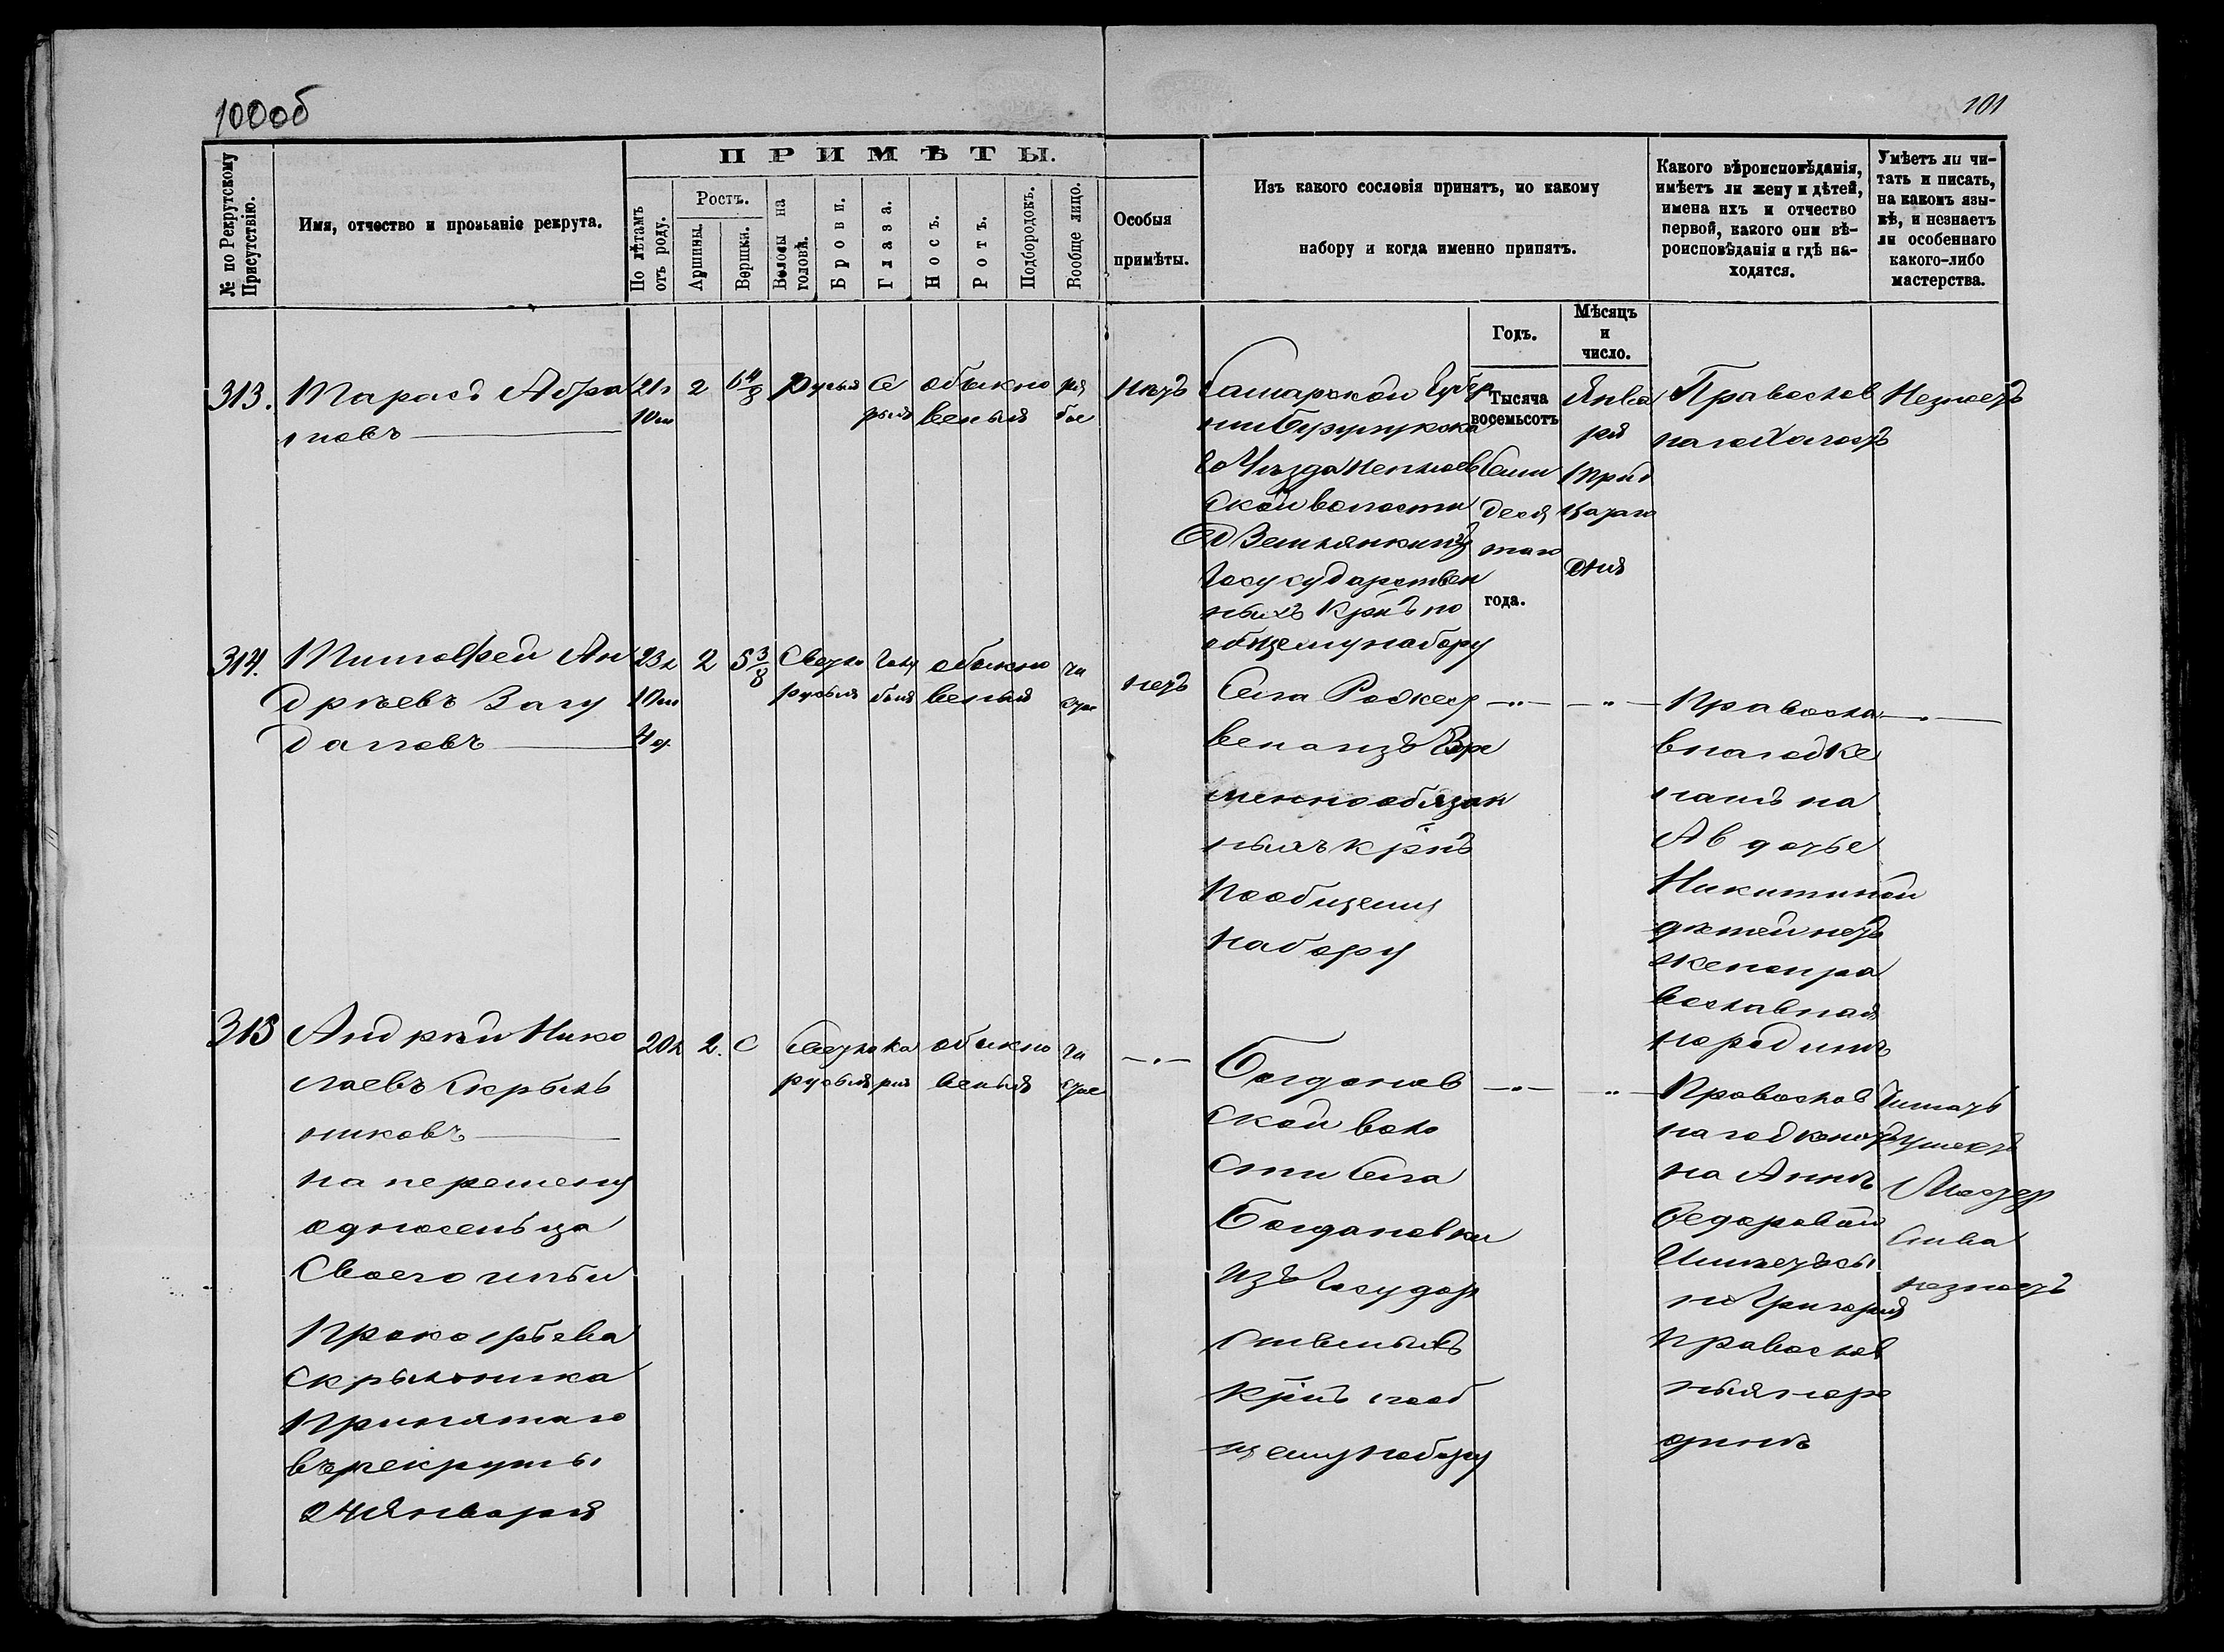 100об
101
№ по Рекрутскому Присутствію.
Имя, отчество и прозваніе рекрута.
ПРИМѢТЫ.
По лѣтамъ отъ роду.
Ростъ.
Аршины.
Вершки.
Волосы на головѣ.
Брови.
Глаза.
Носъ.
Ротъ.
Подбородокъ.
Вообще лицо.
Особыя
примѣты.
Изъ какого сословія принятъ, по какому
набору и когда именно принятъ.
Годъ.
Мѣсяцъ
и
число.
Какого вѣроисповѣданія,
имѣетъ ли жену и дѣтей,
имена ихъ и отчество
первой, какого они вѣ-
роисповѣданія и гдѣ на-
ходятся.
Умѣетъ ли чи-
тать и писать,
на какомъ язы-
кѣ, и незнаетъ
ли особеннаго
какого-либо
мастерства.
313.
Тарасъ Абра
мовъ
21л
10м
2
6 4/8
русыя
се
рыя
обыкно
веныя
ря
бое
Нѣтъ
Самарской Губер
ніи Бузулукска
го Уѣзда
ской волости
Землянкины
Государствен
ныхъ Крнъ по
общему набору
Тысяча
восемьсотъ
Семи
деся
таго
года.
Янва
ря
Трид
цатаго
дня
Православ
наго Холостъ
Незнаетъ
314.
Тимофей Ан
дрѣевъ Загу
даловъ
23л
10м
4д
2
5 3/8
Светло
русыя
Голу
быя
обыкно
веныя
чи
стое
нетъ
Села
изъ Вре
меннообязан
ныхъ крнъ
пообщему
набору
Правосла
внаго Же
натъ на
Авдотье
Никитиной
дѣтей нетъ
жена пра
вославная
народинѣ
315
Андрѣй Нико
лаевъ Скрыль
никовъ
на перемену
односельца
Своего
Прокофьева
Скрыльника
Принятаго
въ рекруты
24 Января
20л
2.
с
Светло
русыя
Ка
рія
обыкно
веныя
чи
стое
Богданов
ской воло
сти Села
Богдановки
изъ Государ
ственыхъ
крнъ пооб
щему набору
Православ
наго женатъ
на Аннѣ
Федоровой
Имеетъ сы
на Григорія
православ
ныя наро
динѣ
Читать
умеетъ
Мастер
ства
незнаетъ